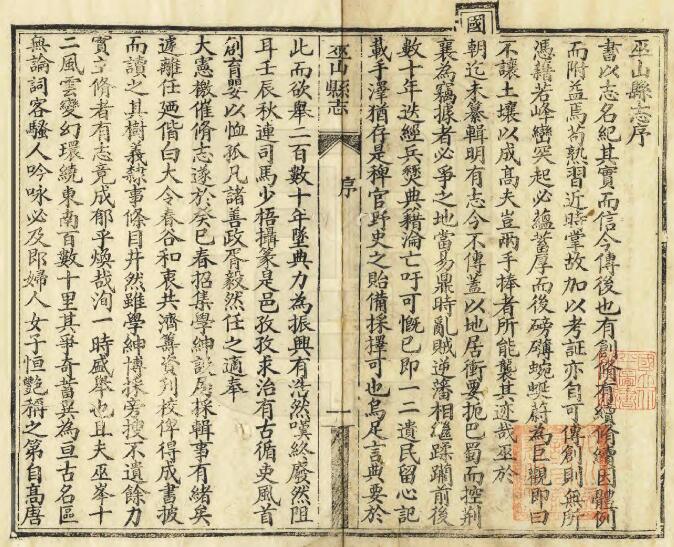 巫山縣志序
書以志名紀其實而信今傳後也有創脩有續脩續因體例
而附益焉苟熟習近時掌故加以考証亦自可傳創則無所
憑藉若峰巒突起必蘊蓄厚而後磅礴蜿蜒蔚為巨觀即曰
不讓土壤以成高夫豈兩手捧者所能襲其迹哉巫於
國朝迄未纂輯明有志今不傳蓋以地居衝要扼巴蜀而控荆
襄為竊據者必爭之地當易鼎時亂賊逆藩相繼蹂躙前後
數十年迭經兵燹典籍淪亡吁可慨已即一二遺民留心記
載手澤猶存是稗官野史之貽備採擇可也烏足言典要於
巫山縣志
序
一
此而欲舉二百數十年墜典力為振興有浩然嘆終廢然阻
耳壬辰秋連司馬少梧攝篆是邑孜孜求治有古循吏風首
創育嬰以恤孤凡諸善政胥毅然任之適奉
大憲檄催脩志遂於癸巳春招集學紳設局採輯事有緒矣
遽離任廼偕白大令春谷和衷共濟籌資列校俾得成書披
而讀之其樹義隸事條目井然雖學紳博採旁搜不遺餘力
實立脩者有志竟成郁乎煥哉洵一時盛舉也且夫巫峯十
二風雲變幻環繞東南百數十里其爭奇蓄異為亘古名區
無論詞客騷人吟咏必及即婦人女子恒艷稱之第自高唐